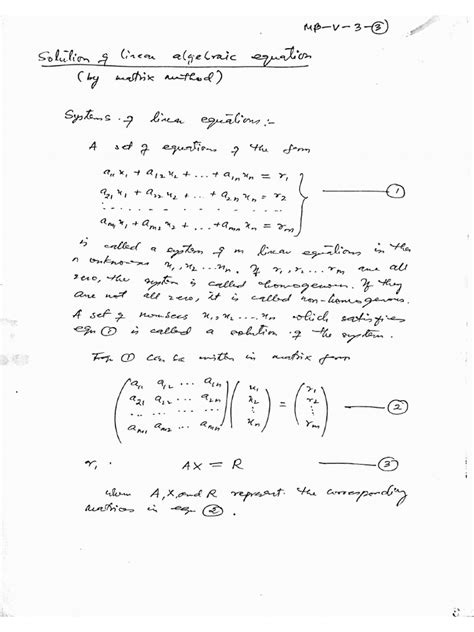 MB-V-3-③
Solution of linear algebraic equation
(by matrix method)
Systems of linear equations:-
A set of equations of the form
a₁₁x₁ + a₁₂x₂ + ... + a₁ₙxₙ = r₁
a₂₁x₁ + a₂₂x₂ + ... + a₂ₙxₙ = r₂ — ①
- - - - - - - - - - - - - -
aₘ₁x₁ + aₘ₂x₂ + ... + aₘₙxₙ = rₘ
is called a system of m linear equations in the
n unknowns x₁, x₂ ... xₙ. If r₁, r₂ ... rₘ are all
zero, the system is called homogenous. If they
are not all zero, it is called non-homogenous.
A set of numbers x₁, x₂ ... xₙ which satisfies
eqn ① is called a solution of the system.
① can be written in matrix form
a₁₁ a₁₂ ... a₁ₙ
a₂₁ a₂₂ ... a₂ₙ
... ... ... ...
aₘ₁ aₘ₂ ... aₘₙ
x₁
x₂
⋮
xₙ
=
r₁
r₂
⋮
rₘ
— ②
or, AX = R — ③
where A, X, and R represent the corresponding
matrices in eqn ②.